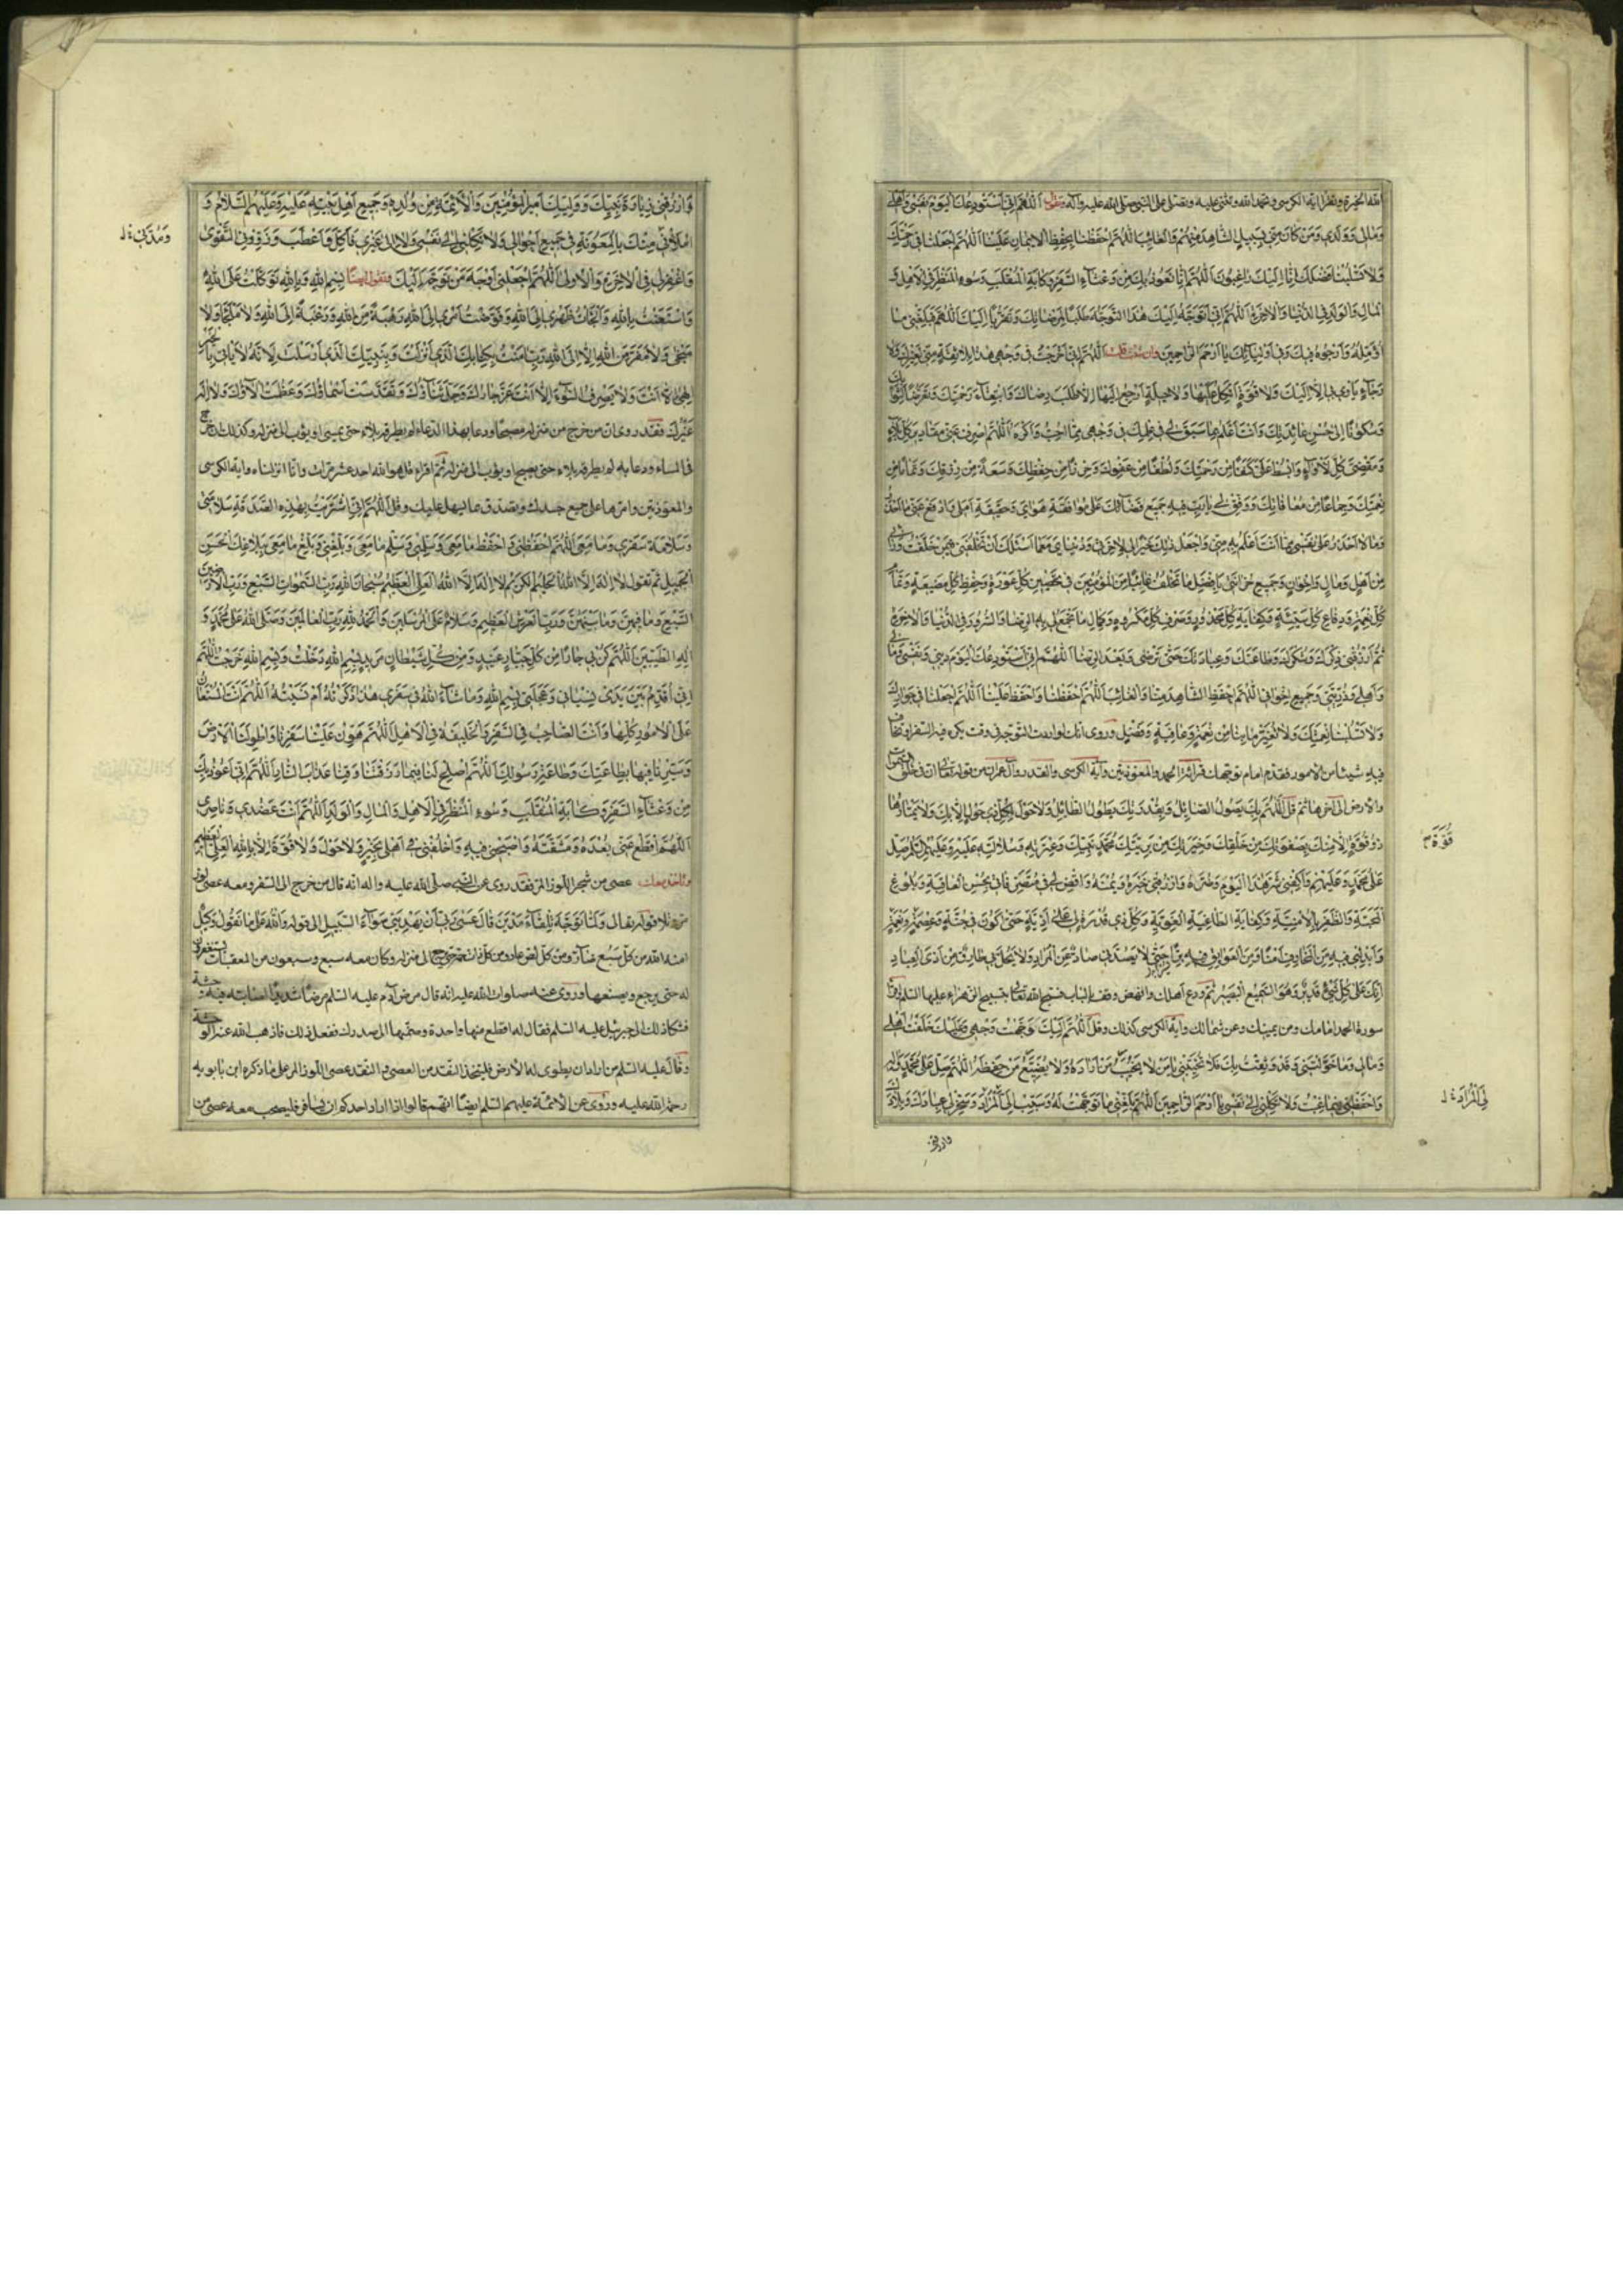 الله الخيرة ويقرأ آية الكرسي ويحمد الله ويثني عليه ويصلي على النبي صلى الله عليه وآله ويقول اَللّٰهُمَّ اِنّي اَسْتَوْدِعُكَ الْيَوْمَ نَفْسي وَاَهْلي
وَمٰالي وَوَلَدي وَمَنْ كٰانَ مِنّي بِسَبيلٍ الشّٰاهِدَ مِنْهُمْ وَالْغٰائِبَ اَللّٰهُمَّ احْفَظْنٰا بِحِفْظِ الْايمٰانِ وَاحْفَظْ عَلَيْنٰا اَللّٰهُمَّ اجْعَلْنٰا في رَحْمَتِكَ
وَلٰا تَسْلُبْنٰا فَضْلَكَ اِنّٰا اِلَيْكَ رٰاغِبُونَ اَللّٰهُمَّ اِنّٰا نَعُوذُ بِكَ مِنْ وَعْثٰاءِ السَّفَرِ وَكٰابَةِ الْمُنْقَلَبِ وَسُوءِ الْمَنْظَرِ فِي الْاَهْلِ وَ
الْمٰالِ وَالْوَلَدِ فِي الدُّنْيٰا وَالْاٰخِرَةِ اَللّٰهُمَّ اِنّي اَتَوَجَّهُ اِلَيْكَ هٰذَا التَّوَجُّهَ طَلَبًا لِمَرْضٰاتِكَ وَتَقَرُّبًا اِلَيْكَ اَللّٰهُمَّ فَبَلِّغْني مٰا
اُؤَمِّلُهُ وَاَرْجُوهُ فيكَ وَفي اَوْلِيٰائِكَ يٰا اَرْحَمَ الرّٰاحِمينَ وان شئت قلت اَللّٰهُمَّ اِنّي خَرَجْتُ في وَجْهي هٰذٰا بِلٰا ثِقَةٍ مِنّي لِغَيْرِكَ وَلٰا
رَجٰاءٍ يَأْوي بي اِلّٰا اِلَيْكَ وَلٰا قُوَّةٍ اَتَّكِلُ عَلَيْهٰا وَلٰا حيلَةٍ اَرْجِعُ اِلَيْهٰا اِلّٰا طَلَبَ رِضٰاكَ وَابْتِغٰاءَ رَحْمَتِكَ وَتَعَرُّضًا لِثَوٰابِكَ
وَسُكُونًا اِلىٰ حُسْنِ عٰائِدَتِكَ وَاَنْتَ اَعْلَمُ بِمٰا سَبَقَ لي في عِلْمِكَ في وَجْهي مِمّٰا اُحِبُّ وَاَكْرَهُ اَللّٰهُمَّ اصْرِفْ عَنّي مَقٰاديرَ كُلِّ بَلٰاءٍ
وَمَقْضِيَّ كُلِّ لَاْوٰاءٍ وَابْسُطْ عَلَيَّ كَنَفًا مِنْ رَحْمَتِكَ وَلُطْفًا مِنْ عَفْوِكَ وَحِرْزًا مِنْ حِفْظِكَ وَسَعَةً مِنْ رِزْقِكَ وَتَمٰامًا مِنْ
نِعْمَتِكَ وَجِمٰاعًا مِنْ مُعٰافٰاتِكَ وَوَفِّقْ لي يٰا رَبِّ فيهِ جَميعَ قَضٰائِكَ عَلىٰ مُوٰافَقَةِ هَوٰايَ وَحَقيقَةِ اَمَلي وَادْفَعْ عَنّي مٰا اَحْذَرُ
وَمٰا لٰا اَحْذَرُ عَلىٰ نَفْسي مِمّٰا اَنْتَ اَعْلَمُ بِهِ مِنّي وَاجْعَلْ ذٰلِكَ خَيْرًا لي لِاٰخِرَتي وَدُنْيٰايَ مَعَ مٰا اَسْئَلُكَ اَنْ تَخْلُفَني فيمَنْ خَلَّفْتُ وَرٰائي
مِنْ اَهْلٍ وَمٰالٍ وَاِخْوٰانٍ وَجَميعِ حُزٰانَتي بِاَفْضَلِ مٰا تَخْلُفُ غٰائِبًا مِنَ الْمُؤْمِنينَ في تَحْصينِ كُلِّ عَوْرَةٍ وَحِفْظِ كُلِّ مَضيعَةٍ وَتَمٰامِ
كُلِّ نِعْمَةٍ وَدِفٰاعِ كُلِّ سَيِّئَةٍ وَكِفٰايَةِ كُلِّ مَحْذُورٍ وَصَرْفِ كُلِّ مَكْرُوهٍ وَكَمٰالِ مٰا تَجْمَعُ لي بِهِ الرِّضٰا وَالسُّرُورَ فِي الدُّنْيٰا وَالْاٰخِرَةِ
ثُمَّ ارْزُقْني ذِكْرَكَ وَشُكْرَكَ وَطٰاعَتَكَ وَعِبٰادَتَكَ حَتّىٰ تَرْضىٰ وَبَعْدَ الرِّضٰا اَللّٰهُمَّ اِنّي اَسْتَوْدِعُكَ الْيَوْمَ ديني وَنَفْسي وَمٰالي
وَاَهْلي وَذُرِّيَّتي وَجَميعَ اِخْوٰاني اَللّٰهُمَّ احْفَظِ الشّٰاهِدَ مِنّٰا وَالْغٰائِبَ اَللّٰهُمَّ احْفَظْنٰا وَاحْفَظْ عَلَيْنٰا اَللّٰهُمَّ اجْعَلْنٰا في جِوٰارِكَ
وَلٰا تَسْلُبْنٰا نِعْمَتَكَ وَلٰا تُغَيِّرْ مٰا بِنٰا مِنْ نِعْمَةٍ وَعٰافِيَةٍ وَفَضْلٍ وروى انك لو اردت التوجه في وقت يكره فيه السفر او تخاف
فيه شيئا من الامور فقدم امام توجهك قراءة الحمد والمعوذتين وآية الكرسي والقدر وآل عمران من قوله تعالى ان في خلق السموات
والارض الى آخرها ثم قل اَللّٰهُمَّ بِكَ يَصُولُ الصّٰائِلُ وَبِقُدْرَتِكَ يَطُولُ الطّٰائِلُ وَلٰا حَوْلَ لِكُلِّ ذي حَوْلٍ اِلّٰا بِكَ وَلٰا قُوَّةَ يَمْتٰارُهٰا
ذُو قُوَّةٍ اِلّٰا مِنْكَ بِصَفْوَتِكَ مِنْ خَلْقِكَ وَخِيَرَتِكَ مِنْ بَرِيَّتِكَ مُحَمَّدٍ نَبِيِّكَ وَعِتْرَتِهِ وَسُلٰالَتِهِ عَلَيْهِ وَعَلَيْهِمُ السَّلٰامُ صَلِّ
عَلىٰ مُحَمَّدٍ وَعَلَيْهِمْ وَاكْفِني شَرَّ هٰذَا الْيَوْمِ وَضَرَّهُ وَارْزُقْني خَيْرَهُ وَيُمْنَهُ وَاقْضِ لي في مُتَصَرَّفٰاتي بِحُسْنِ الْعٰاقِبَةِ وَبُلُوغِ
الْمَحَبَّةِ وَالظَّفَرِ بِالْاُمْنِيَّةِ وَكِفٰايَةِ الطّٰاغِيَةِ الْغَوِيَّةِ وَكُلِّ ذي قُدْرَةٍ لي عَلىٰ اَذِيَّةٍ حَتّىٰ اَكُونَ في جُنَّةٍ وَعِصْمَةٍ وَنِعْمَةٍ
وَاَبْدِلْني فيهِ مِنَ الْمَخٰاوِفِ اَمْنًا وَمِنَ الْعَوٰائِقِ فيهِ يُسْرًا حَتّىٰ لٰا يَصُدَّني صٰادٌّ عَنِ الْمُرٰادِ وَلٰا يَحُلَّ بي طٰارِقٌ مِنْ اَذَى الْعِبٰادِ
اِنَّكَ عَلىٰ كُلِّ شَيْءٍ قَديرٌ وَهُوَ السَّميعُ الْبَصيرُ ثم ودع اهلك وانهض وقف بالباب فسبح الله تعالى بتسبيح الزهراء عليها السلم واقرأ
سورة الحمد امامك وعن يمينك وعن شمالك وآية الكرسي كذلك وقل اَللّٰهُمَّ اِلَيْكَ وَجَّهْتُ وَجْهي وَعَلَيْكَ خَلَّفْتُ اَهْلي
وَمٰالي وَمٰا خَوَّلْتَني وَقَدْ وَثِقْتُ بِكَ فَلٰا تُخَيِّبْني يٰا مَنْ لٰا يُخَيِّبُ مَنْ اَرٰادَهُ وَلٰا يُضَيِّعُ مَنْ حَفِظَهُ اَللّٰهُمَّ صَلِّ عَلىٰ مُحَمَّدٍ وَاٰلِهِ
وَاحْفَظْني فيمٰا غِبْتُ وَلٰا تَكِلْني اِلىٰ نَفْسي يٰا اَرْحَمَ الرّٰاحِمينَ اَللّٰهُمَّ بَلِّغْني مٰا تَوَجَّهْتُ لَهُ وَسَبِّبْ لِيَ الْمُرٰادَ وَسَخِّرْ لي عِبٰادَكَ وَبِلٰادَكَ
قُوَّةَ
لِيَ الْمُرٰادَ
وارزقني
وَارْزُقْني زِيٰارَةَ نَبِيِّكَ وَوَلِيِّكَ اَميرِ الْمُؤْمِنينَ وَالْاَئِمَّةِ مِنْ وُلْدِهِ وَجَميعِ اَهْلِ بَيْتِهِ عَلَيْهِ وَعَلَيْهِمُ السَّلٰامُ وَ
مِنْكَ بِالْمَعُونَةِ في جَميعِ اَحْوٰالي وَلٰا تَكِلْني اِلىٰ نَفْسي وَلٰا اِلىٰ غَيْري فَاَكِلَّ وَاَعْطَبَ وَزَوِّدْنِي التَّقْوىٰ
وَاغْفِرْ لي فِي الْاٰخِرَةِ وَالْاُولىٰ اَللّٰهُمَّ اجْعَلْني اَوْجَهَ مَنْ تَوَجَّهَ اِلَيْكَ وتقول ايضًا بِسْمِ اللهِ وَبِاللهِ تَوَكَّلْتُ عَلَى اللهِ
وَاسْتَعَنْتُ بِاللهِ وَاَلْجَأْتُ ظَهْري اِلَى اللهِ وَفَوَّضْتُ اَمْري اِلَى اللهِ رَهْبَةً مِنَ اللهِ وَرَغْبَةً اِلَى اللهِ وَلٰا مَلْجَأَ وَلٰا
مَنْجىٰ وَلٰا مَفَرَّ مِنَ اللهِ اِلّٰا اِلَى اللهِ رَبِّ اٰمَنْتُ بِكِتٰابِكَ الَّذي اَنْزَلْتَ وَبِنَبِيِّكَ الَّذي اَرْسَلْتَ لِاَنَّهُ لٰا يَأْتي بِالْخَيْرِ
اِلٰهي اِلّٰا اَنْتَ وَلٰا يَصْرِفُ السُّوءَ اِلّٰا اَنْتَ عَزَّ جٰارُكَ وَجَلَّ ثَنٰاؤُكَ وَتَقَدَّسَتْ اَسْمٰاؤُكَ وَعَظُمَتْ اٰلٰاؤُكَ وَلٰا اِلٰهَ
غَيْرُكَ فقد روي ان من خرج من منزله مصبحا ودعا بهذا الدعاء لم يطرقه بلاء حتى يمسي او يؤب الى منزله وكذلك من خرج
في المساء ودعا به لم يطرقه بلاء حتى يصبح او يؤب الى منزله ثم اقراء قل هو الله احد عشر مرات وانا انزلناه وآية الكرسي
والمعوذتين وامرها على جميع جسدك وتصدق بما يسهل عليك وقل اَللّٰهُمَّ اِنِّي اشْتَرَيْتُ بِهٰذِهِ الصَّدَقَةِ سَلٰامَتي
وَسَلٰامَةَ سَفَري وَمٰا مَعي اَللّٰهُمَّ احْفَظْني وَاحْفَظْ مٰا مَعِيَ وَسَلِّمْني وَسَلِّمْ مٰا مَعِيَ وَبَلِّغْني وَبَلِّغْ مٰا مَعِيَ بِبَلٰاغِكَ الْحَسَنِ
الْجَميلِ ثم تقول لٰا اِلٰهَ اِلَّا اللهُ الْحَليمُ الْكَريمُ لٰا اِلٰهَ اِلَّا اللهُ الْعَلِيُّ الْعَظيمُ سُبْحٰانَ اللهِ رَبِّ السَّمٰوٰاتِ السَّبْعِ وَرَبِّ الْاَرَضينَ
السَّبْعِ وَمٰا فيهِنَّ وَمٰا بَيْنَهُنَّ وَرَبِّ الْعَرْشِ الْعَظيمِ وَسَلٰامٌ عَلَى الْمُرْسَلينَ وَالْحَمْدُ لِلّٰهِ رَبِّ الْعٰالَمينَ وَصَلَّى اللهُ عَلىٰ مُحَمَّدٍ وَ
اٰلِهِ الطَّيِّبينَ اَللّٰهُمَّ كُنْ لي جٰارًا مِنْ كُلِّ جَبّٰارٍ عَنيدٍ وَمِنْ كُلِّ شَيْطٰانٍ مَريدٍ بِسْمِ اللهِ دَخَلْتُ وَبِسْمِ اللهِ خَرَجْتُ اَللّٰهُمَّ
اِنّي اُقَدِّمُ بَيْنَ يَدَيْ نِسْيٰاني وَعَجَلَتي بِسْمِ اللهِ وَمٰا شٰاءَ اللهُ في سَفَري هٰذٰا ذَكَرْتُهُ اَمْ نَسيتُهُ اَللّٰهُمَّ اَنْتَ الْمُسْتَعٰانُ
عَلَى الْاُمُورِ كُلِّهٰا وَاَنْتَ الصّٰاحِبُ فِي السَّفَرِ وَالْخَليفَةُ فِي الْاَهْلِ اَللّٰهُمَّ هَوِّنْ عَلَيْنٰا سَفَرَنٰا وَاطْوِ لَنَا الْاَرْضَ
وَسَيِّرْنٰا فيهٰا بِطٰاعَتِكَ وَطٰاعَةِ رَسُولِكَ اَللّٰهُمَّ اَصْلِحْ لَنٰا فيمٰا رَزَقْتَنٰا وَقِنٰا عَذٰابَ النّٰارِ اَللّٰهُمَّ اِنّي اَعُوذُ بِكَ
مِنْ وَعْثٰاءِ السَّفَرِ وَكٰابَةِ الْمُنْقَلَبِ وَسُوءِ الْمَنْظَرِ فِي الْاَهْلِ وَالْمٰالِ وَالْوَلَدِ اَللّٰهُمَّ اَنْتَ عَضُدي وَنٰاصِري
اَللّٰهُمَّ اقْطَعْ عَنّي بُعْدَهُ وَمَشَقَّتَهُ وَاصْحَبْني فيهِ وَاخْلُفْني في اَهْلي بِخَيْرٍ وَلٰا حَوْلَ وَلٰا قُوَّةَ اِلّٰا بِاللهِ الْعَلِيِّ الْعَظيمِ
وتأخذ معك عصى من شجر اللوز المر فقد روي عن النبي صلى الله عليه وآله انه قال من خرج الى السفر ومعه عصى لوز
مر وتلا قوله تعالى وَلَمّٰا تَوَجَّهَ تِلْقٰاءَ مَدْيَنَ قٰالَ عَسىٰ رَبّي اَنْ يَهْدِيَني سَوٰاءَ السَّبيلِ الى قوله وَاللهُ عَلىٰ مٰا نَقُولُ وَكيلٌ
امنه الله من كل سبع ضار ومن كل لص عاد ومن كل ذات حمة حتى يرجع الى منزله وكان معه سبع وسبعون من المعقبات يستغفرون
له حتى يرجع ويضعها وروي عنه صلوات الله عليه انه قال مرض آدم عليه السلم مرضًا شديدًا اصابته فيه وحشة
فشكا ذلك الى جبرئيل عليه السلم فقال له اقطع منها واحدة وضمها الى صدرك ففعل ذلك فاذهب الله عنه الوحشة
وقال عليه السلم من اراد ان يطوى له الارض فليتخذ النقد من العصى والنقد عصى اللوز المر على ما ذكره ابن بابويه
رحمة الله عليه وروي عن الائمة عليهم السلم ايضًا انهم قالوا اذا اراد احدكم ان يسافر فليصحب معه عصى من